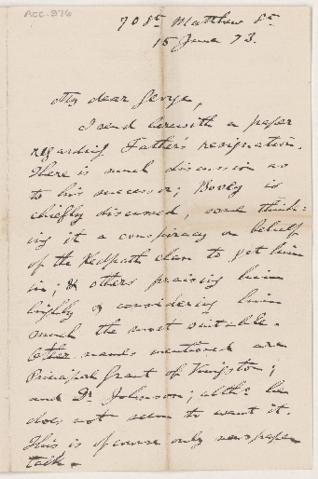 ACC. 976
70 St Matthew St.
15 June 73.
My dear George,
I send herewith a paper
regarding Father's resignation.
There is much discussion as
to his successor; Bovey is
chiefly discussed, some think-
ing it a conspiracy on behalf
of the Redpath clan to get him
in; & others praising him
highly & considering him
much the most suitable.
Other names mentioned are
Principal Grant of Kingston;
and Dr Johnson; altho he
does not seem to want it.
This is of course only newspaper
talk.